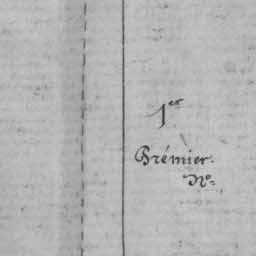 1er
Brémier.
No=